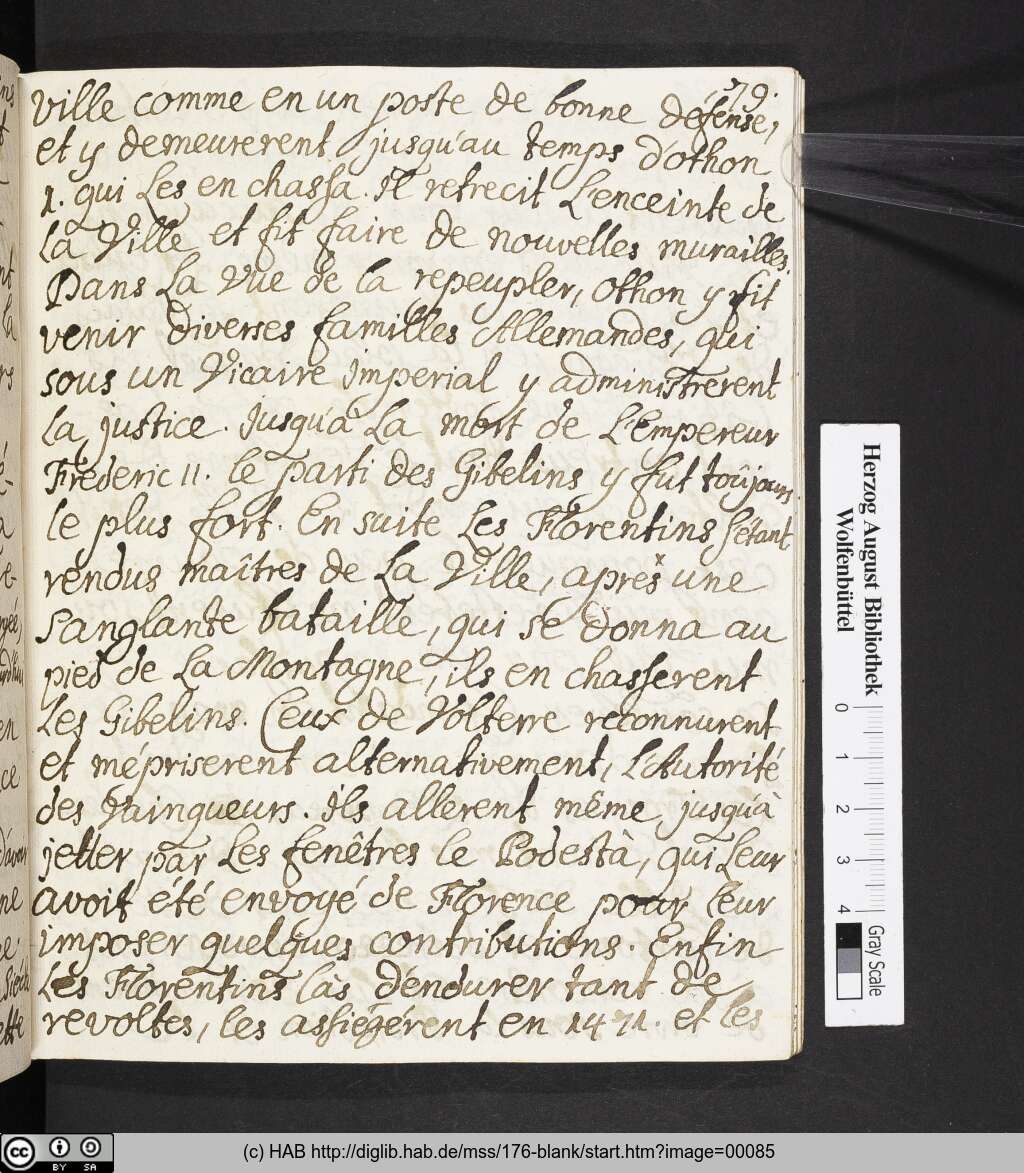 79.
ville comme en un poste de bonne défense,
et y demeurerent jusqu'au temps d'othon
1. qui Les en chassa. Il retrecit L'enceinte de
La Ville et fit faire de nouvelles murailles.
Dans La vue de la repeupler, Othon y fit
venir diverses familles Allemandes, qui
sous un Vicaire Imperial y administrerent
la justice. Jusqu'à La mort de L'Empereur
Fréderic II. le parti des Gibelins y fut toûjours
le plus fort. En suite Les Florentins s'étant
rendus maîtres de La Ville, apres une
sanglante bataille, qui se donna au
pied de La Montagne, ils en chasserent
Les Gibelins. Ceux de Volterre reconnurent
et mépriserent alternativement, L'Autorité
des Vainqueurs. Ils allerent même jusqu'à
jetter par Les fenêtres le Podestà, qui Leur
avoit été envoyé de Florence pour leur
imposer quelques contributions. Enfin
Les Florentins làs d'endurer tant de
revoltes, les assiégérent en 1471. et les
Herzog August Bibliothek
Wolfenbüttel
0 1 2 3 4
Gray Scale
cc BY SA
(c) HAB http://diglib.hab.de/mss/176-blank/start.htm?image=00085